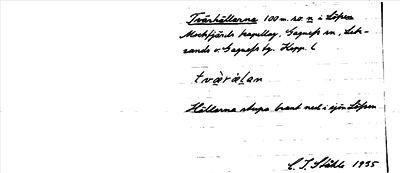 Tvärhällarna 100 m. so. n i Löpen
Mockfjärds kapellag, Gagnefs sn, Lek-
sands o. Gagnefs tg. Kopp. l.
tvàrælan
Hällarna stupa brant ned i sjön Löpen
C. I. Ståhle 1935